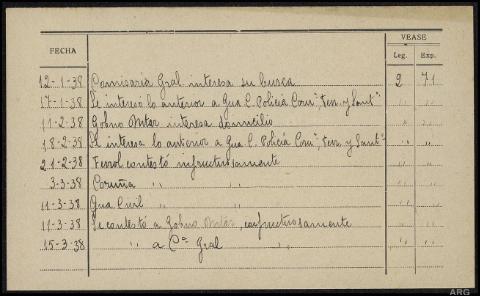 FECHA VEASE
Leg. Exp.
12-1-38 Comisaria Gral interesa su busca 2 71
17-1-38 Se interesó lo anterior a Gua C. Policiá Coruª, Ferr. y Santº " "
11-2-38 Gobno Mtar interesa domicilio " "
18-2-38 Se interesó lo anterior a Gua C. Policiá Coruª, Ferr. y Santº " "
21-2-38 Ferrol contestó infructuosamente " "
3-3-38 Coruña " " " "
11-3-38 Gua Civil " " " "
11-3-38 Se contestó a Gobno Mtar, infructuosamente " "
15-3-38 " a Cª Gral " " "
ARG